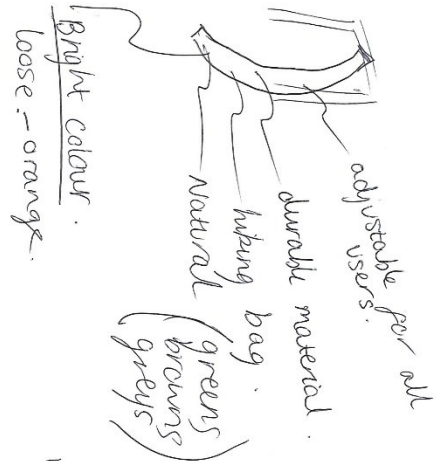 adjustable for all
users.
durable material.
hiking bag.
Natural
(greens
browns
greys)
Bright colour.
loose - orange.